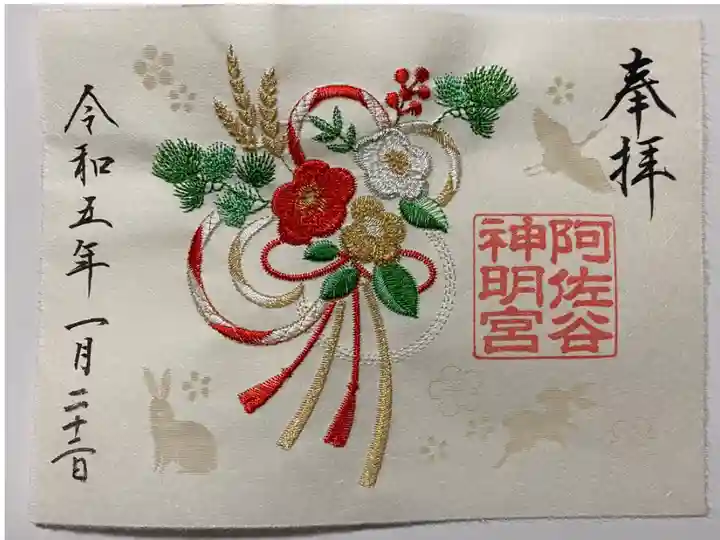 奉拝
阿佐谷
神明宮
令和五年一月二十二日